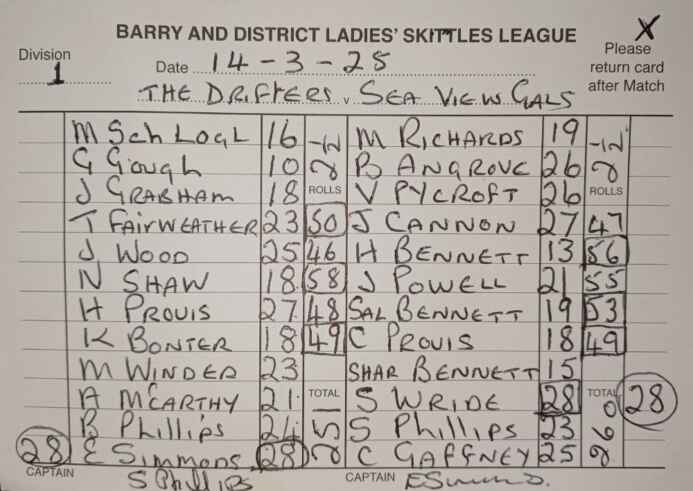 BARRY AND DISTRICT LADIES' SKITTLES LEAGUE X
Division 1
Please return card after Match
Date 14-3-25
THE DRIFTERS v SEA VIEW GALS
M SCHLOGL 16 2½ M RICHARDS 19 2½
G GOUGH 10 B ANGROVE 26
J GRABHAM 18 ROLLS V PYCROFT 26 ROLLS
T FAIRWEATHER 23 50 J CANNON 27 47
J WOOD 25 46 H BENNETT 13 56
N SHAW 18 58 J POWELL 21 55
H PROVIS 27 48 SAL BENNETT 19 53
K BONTER 18 49 C PROVIS 18 49
M WINDER 23 SHAR BENNETT 15
A McCARTHY 21 TOTAL 251 S WRIDE 28 TOTAL 260 28
B PHILLIPS 24 S PHILLIPS 23
28 E SIMMONS 28 C GAFFNEY 25
CAPTAIN S Phillips CAPTAIN E Simmons